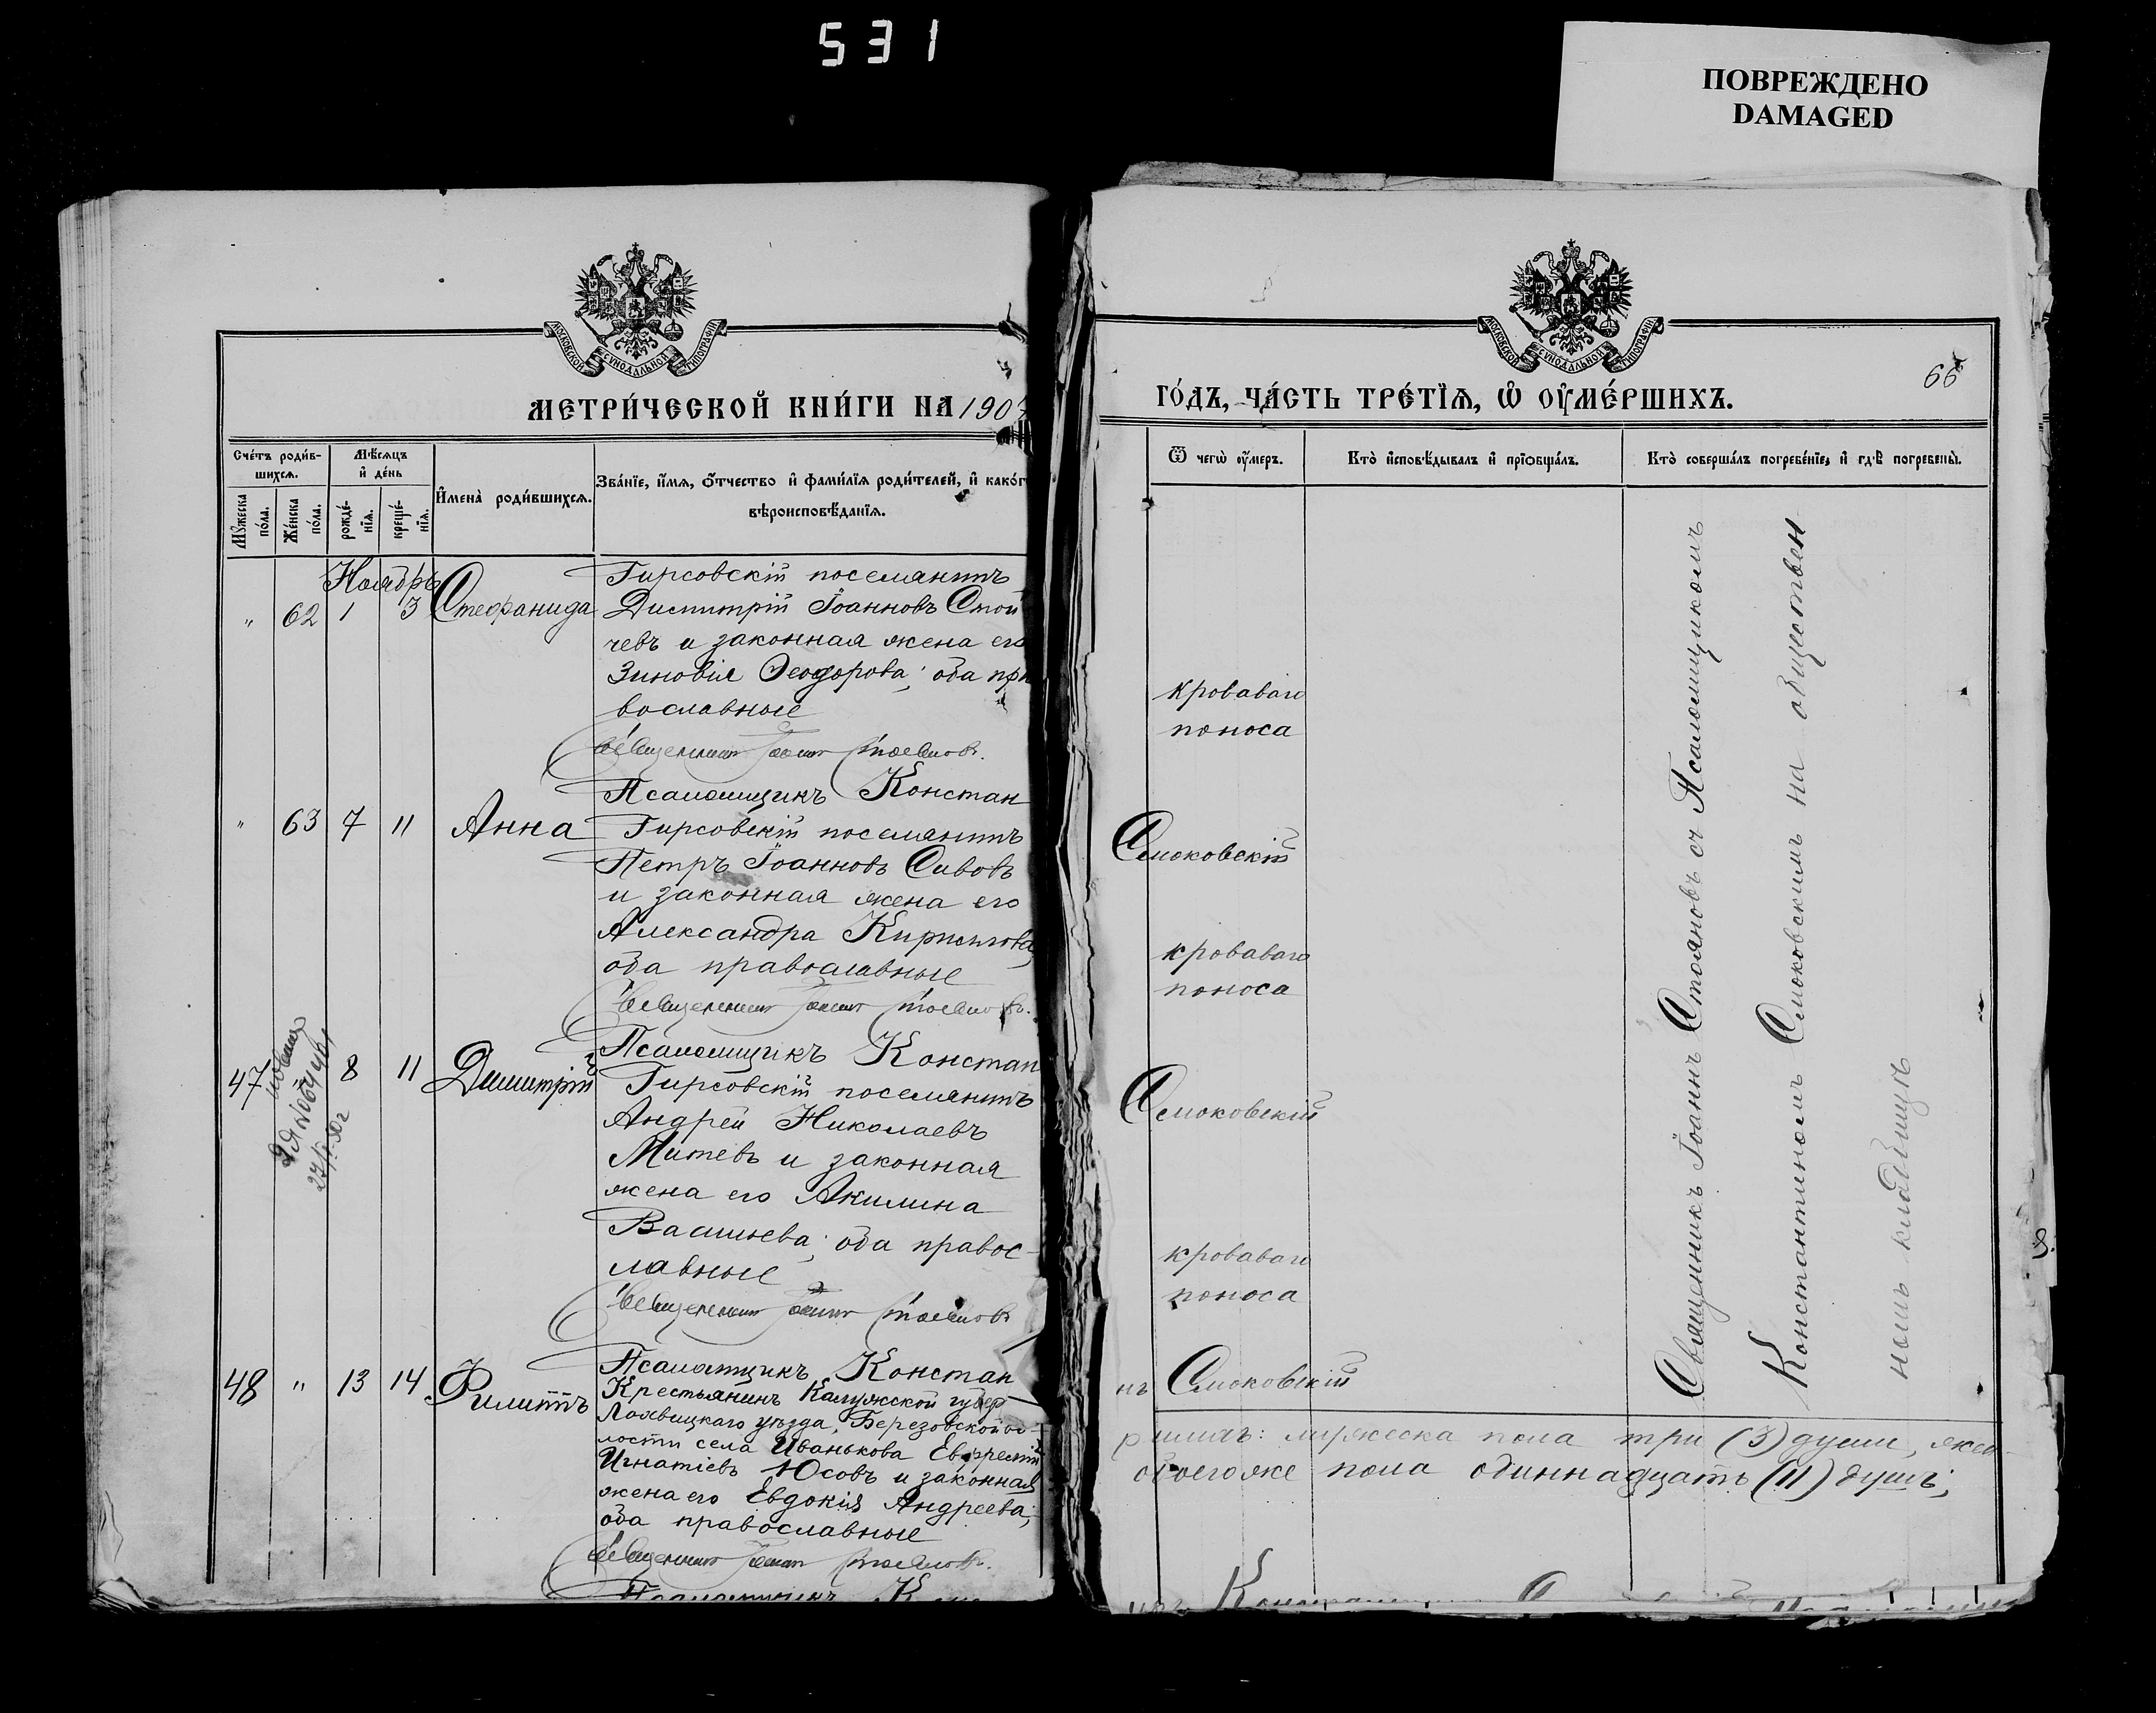 531
ПОВРЕЖДЕНО
DAMAGED
МОСКОВСКОЙ СѴНОДАЛЬНОЙ ТИПОГРАФІИ
МЕТРИ́ЧЕСКОЙ КНИ́ГИ НА 190
Сче́тъ роди́в-
шихся.
Мꙋ́жеска
по́ла.
Же́нска
по́ла.
Мѣ́сяцъ
и҆ де́нь
рожде́-
нїя.
креще́-
нїя.
И҆мена̀ роди́вшихся.
Зва́нїе, и҆́мя, ѻ҆́тчество и҆ фами́лїя роди́телей, и҆ како́г
вѣроисповѣ́данїя.
Ноябрь
" 62 1 3 Стефанида
Гирсовскій поселянинъ
Димитрій Іоанновъ Стой
чевъ и законная жена его
Зиновія Ѳеодорова; оба пра
вославные
Священникъ Іоаннъ Стояновъ.
Псаломщикъ Констан
" 63 7 11 Анна
Гирсовскій поселянинъ
Петръ Іоанновъ Сивовъ
и законная жена его
Александра Кириллова
оба православные
Священникъ Іоаннъ Стояновъ.
Псаломщикъ Констан
47 " 8 11 Димитрій
Гирсовскій поселянинъ
Андрей Николаевъ
Митевъ и законная
жена его Акилина
Васильева; оба правос-
лавные
Священникъ Іоаннъ Стояновъ
Псаломщикъ Констан
48 " 13 14 Филиппъ
Крестьянинъ Калужской губер
уѣзда, Березовской во-
лости села Иванькова Евфремій
Игнатіевъ Юсовъ и законная
жена его Евдокія Андреева;
оба православные
Священникъ Іоаннъ Стояновъ.
Псаломщикъ
МОСКОВСКОЙ СѴНОДАЛЬНОЙ ТИПОГРАФІИ
66
ГО́ДЪ, ЧА́СТЬ ТРЕ́ТЇѦ, Ѡ҆ ОУ҆МЕ́РШИХЪ.
Ѿ чегѡ̀ оу҆́меръ.
Кто̀ и҆сповѣ́дывалъ и҆ прїѡбща́лъ.
Кто̀ соверша́лъ погребе́нїе, и҆ гдѣ̀ погребены̀.
кроваваго
поноса
Смоковскій
кроваваго
поноса
Смоковскій
кроваваго
поноса
нъ Смоковскій
Священникъ Іоаннъ Стояновъ съ Псаломщикомъ
Константиномъ Смоковскимъ на обществен
номъ кладбищѣ
мужеска пола три (3) души, жен-
обоего же пола одиннадцать (11) душъ;